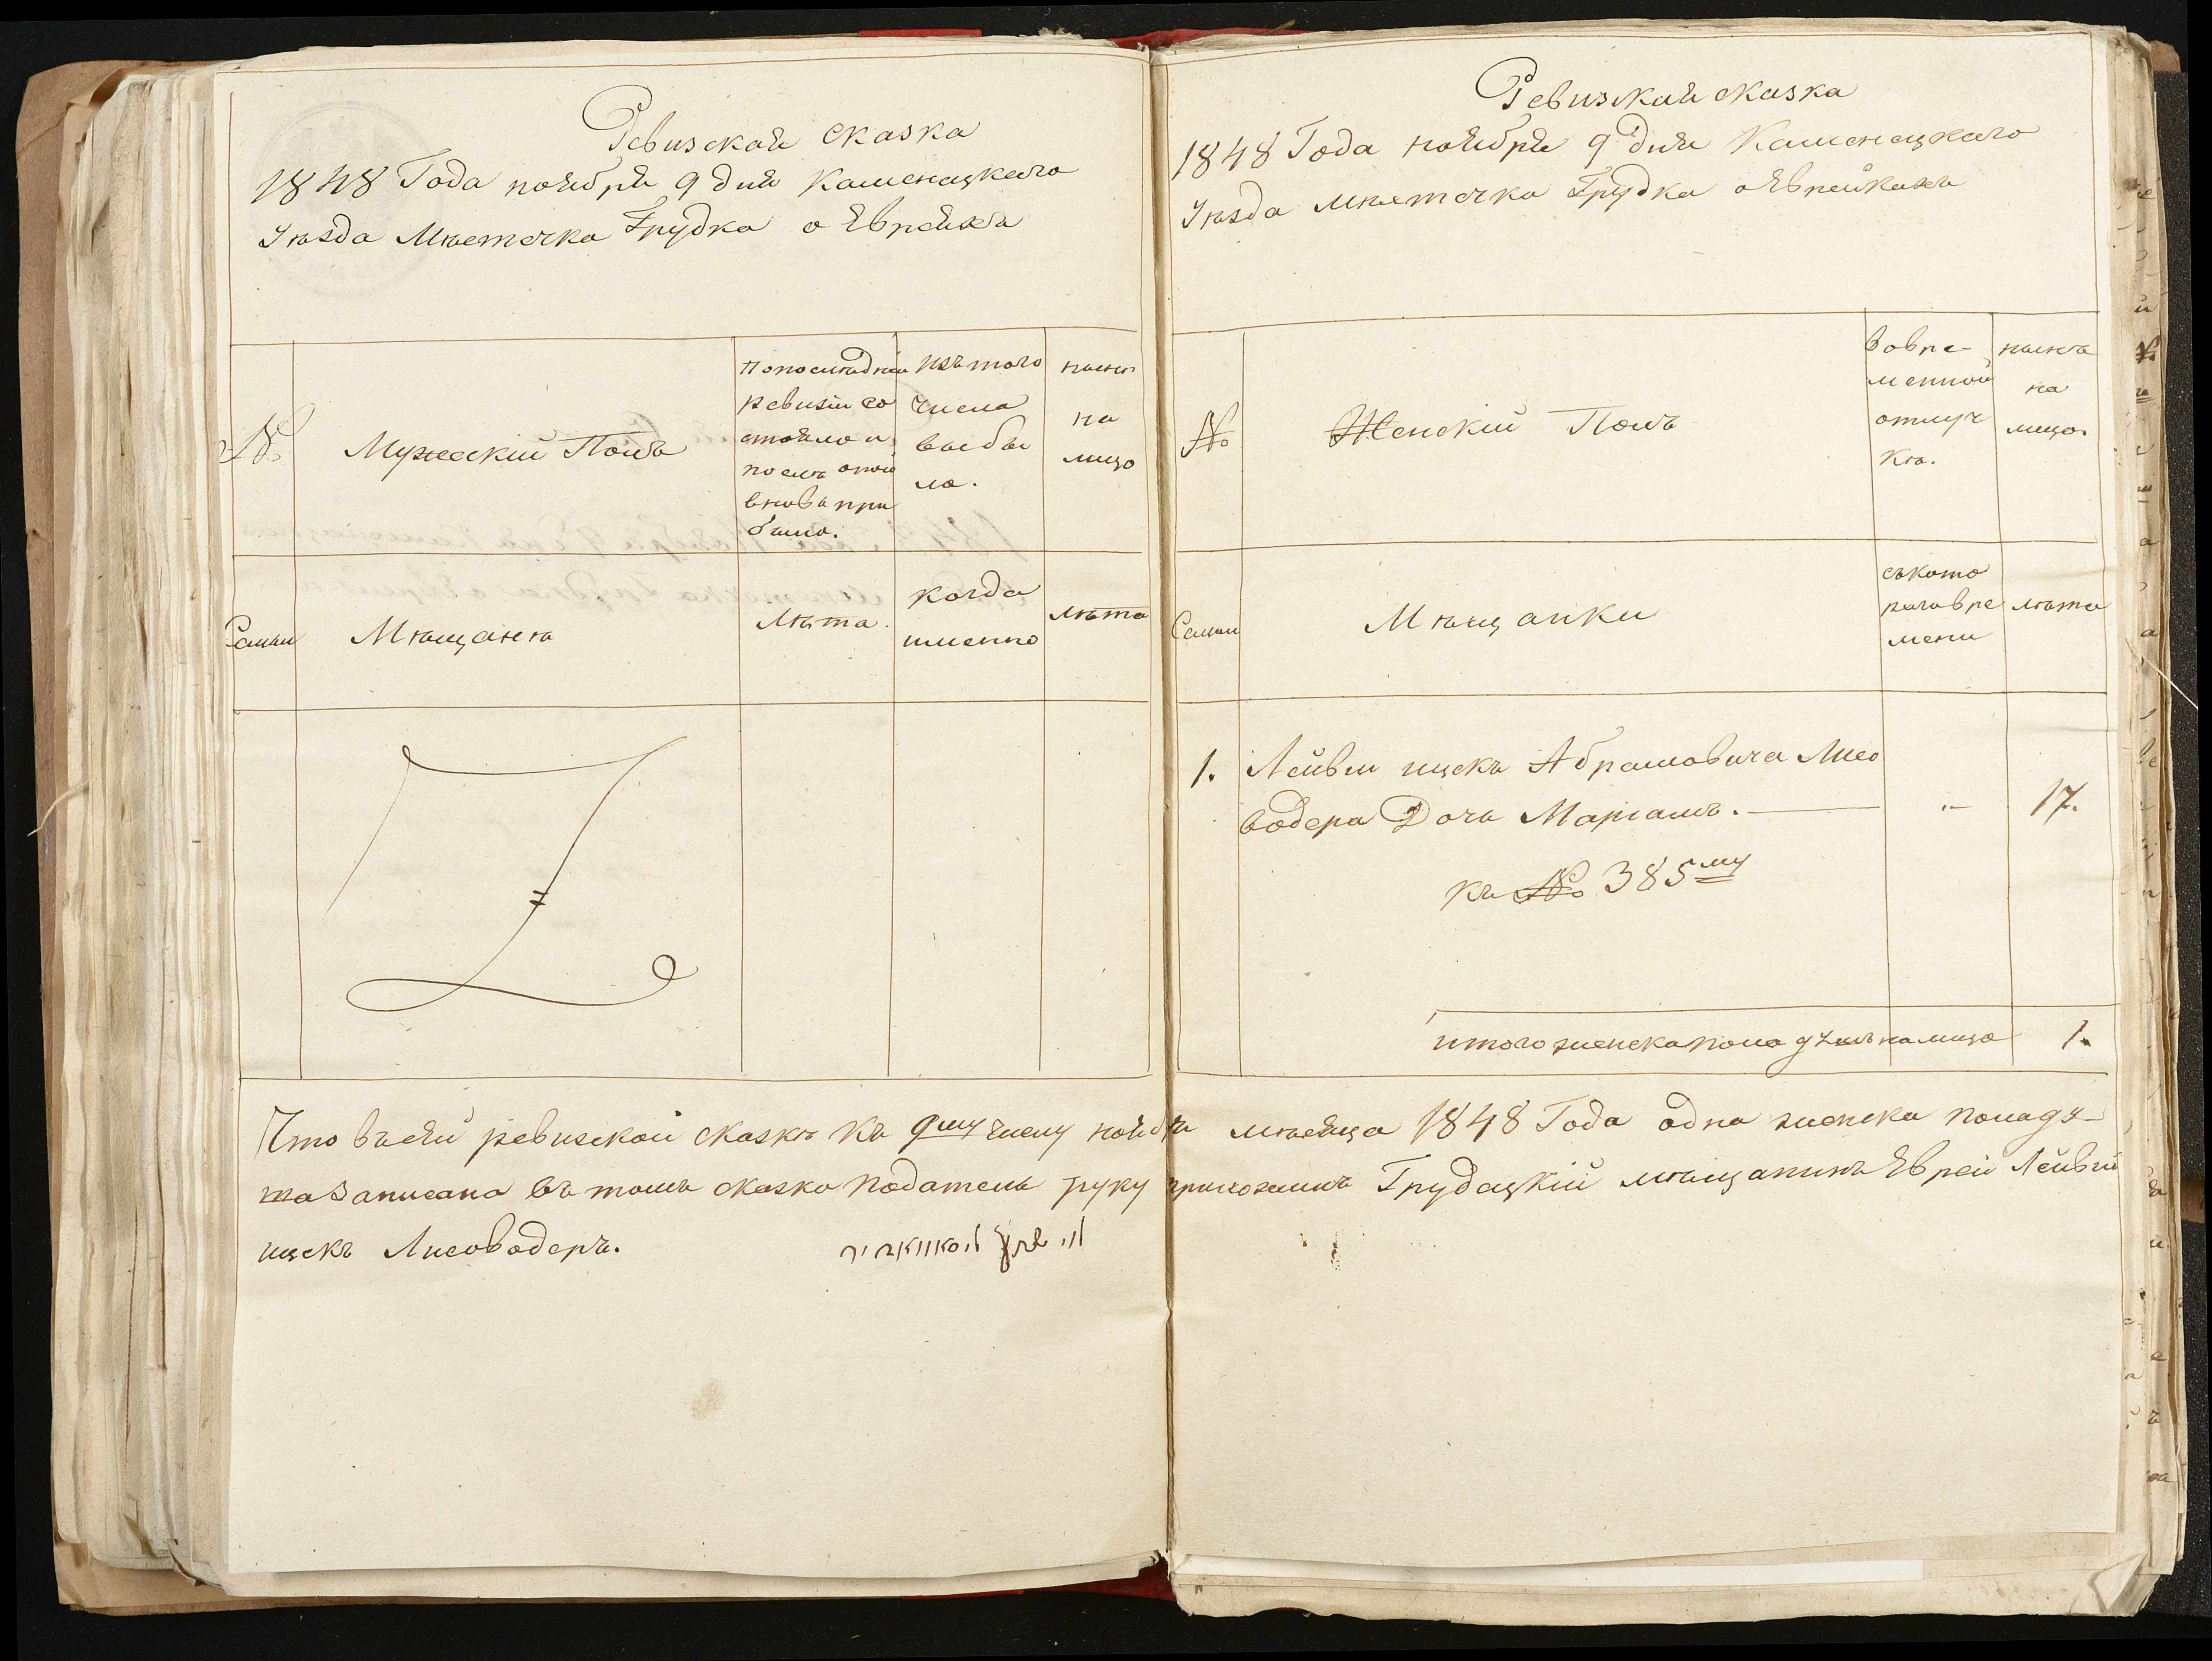 Ревизская сказка
1848 Года ноября 9 дня Каменецкаго
Уѣзда Мѣстечка Грудка о Евреяхъ
№
Мужескій Полъ
По последней
ревизіи со
стояло и
послѣ оной
вновь при
было.
изъ того
числа
выбы
ло.
нынѣ
на
лицо
Семьи
Мѣщане
Лѣта.
когда
именно
лѣта
Ревизская сказка
1848 Года ноября 9 дня Каменецкаго
Уѣзда Мѣстечка Грудка о Еврейкахъ
№
Женскій Полъ
во вре-
менной
отлуч
кѣ.
нынѣ
на
лицо.
Семьи
Мѣщанки
съ кото
раго вре
мени
лѣта
1. Лейви ицскъ Абрамовича Лисо
водера Дочь Маріамъ. — „ 17.
къ № 385му
итого женска пола душъ на лицо 1.
Что въ сей ревизской сказкѣ къ 9му числу ноября месяца 1848 Года одна женска пола ду-
ша записана въ томъ сказко податель руку приложилъ Грудецкій мѣщанинъ Еврей Лейви
ицскъ Лисоводеръ.